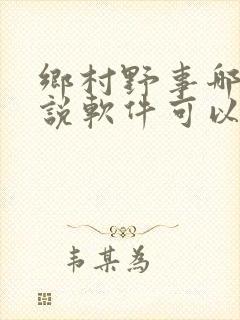 鄉村野事那
說軟件可以
韦某為